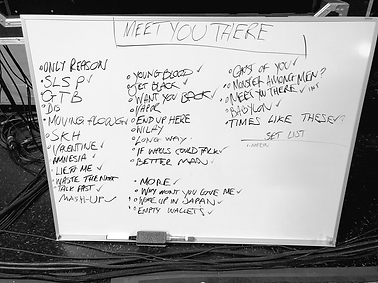 MEET YOU THERE
ONLY REASON
SLSP ✓
GTB
DO
MOVING
SKH
VALENTINE ✓
AMNESIA ✓
LIE TO ME ✓
WASTE THE NIGHT
TALK FAST ✓
MASH-UP ✓
YOUNG BLOOD ✓
GET BLACK ✓
WANT YOU BACK ✓
VAPOR
END UP HERE
LONG WAY
IF WALLS COULD TALK ✓
BETTER MAN ✓
MORE ✓
WHY WONT YOU LOVE ME ✓
WOKE UP IN JAPAN ✓
EMPTY WALLETS ✓
GHOST OF YOU ✓
MONSTER AMONG MEN?
MEET YOU THERE ✓
BABYLON ✓
TIMES LIKE THESE?
SET LIST